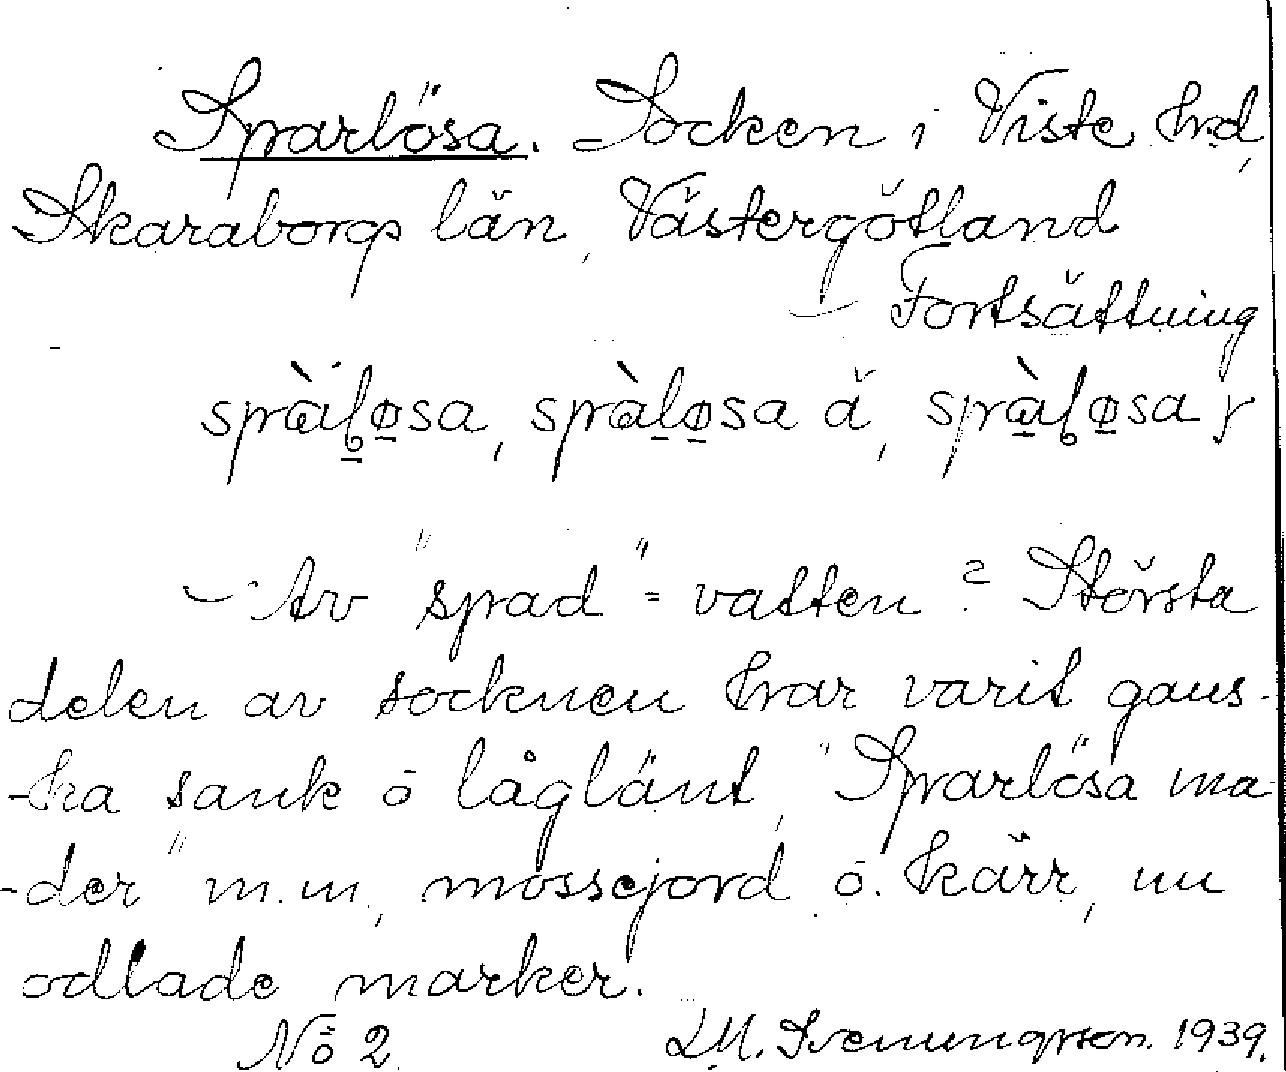 Sparlösa. Socken i Viste hrd,
Skaraborgs län, Västergötland
– Fortsättning
spràɭøsa, spràløsa ä, spràɭøsa r
– Av "spad" = vatten? Största
delen av socknen har varit gans-
-ka sank o låglänt, "Sparlösa ma-
-der" m.m., mossejord o. kärr, nu
odlade marker.
No 2 LM. Svenungsson. 1939.